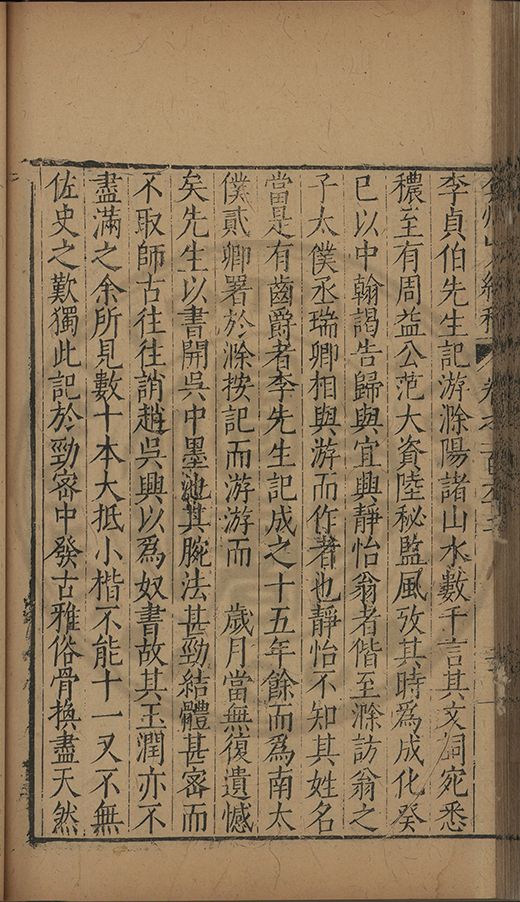 李貞伯先生記游滁陽諸山水數千言其文詞宛悉
穠至有周益公范大資陸秘監風攷其時為成化癸
巳以中翰謁告歸與宜興靜怡翁者偕至滁訪翁之
子太僕丞瑞卿相與游而作者也靜怡不知其姓名
當是有齒爵者李先生記成之十五年餘而為南太
僕貳卿署於滁按記而游游而　歲月當無復遺憾
矣先生以書開吳中墨池其腕法甚勁結體甚密而
不取師古往往誚趙吳興以為奴書故其玉潤亦不
盡滿之余所見數十本大抵小楷不能十一又不無
佐史之歎獨此記於勁密中發古雅俗骨換盡天然